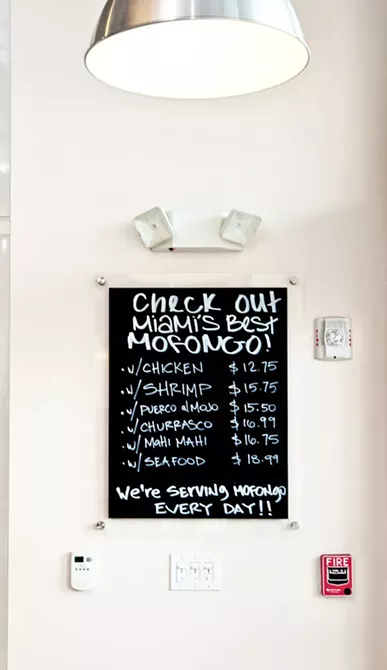 Check Out
Miami's Best
Mofongo!
· w/ CHICKEN $12.75
· w/ SHRIMP $15.75
· w/ PUERCO al MOJO $15.50
· w/ CHURRASCO $16.99
· w/ MAHI MAHI $16.75
· w/ SEAFOOD $18.99
We're SERVING MOFONGO
EVERY DAY!!
FIRE